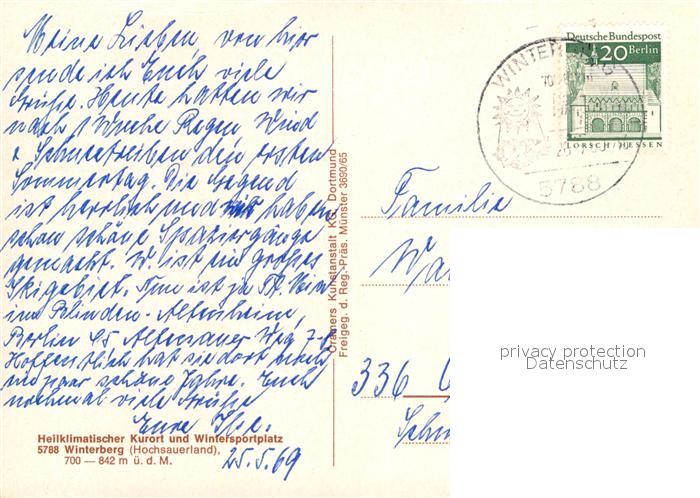 Meine Lieben, von hier
sende ich Euch viele
Grüße. Heute hatten wir
nach 1 Woche Regen, Wind
+ Schneetreiben den ersten
Sommertag. Die Gegend
ist herrlich und wir haben
schon schöne Spaziergänge
gemacht. W. ist ein großes
Skigebiet. Nun ist ja Fr.
im Blinden-Altenheim,
Berlin 45 Altenauer Weg
Hoffentlich hat sie dort noch
ein paar schöne Jahre. Euch
nochmal viele Grüße
Eure Ilse.
25.5.69
Heilklimatischer Kurort und Wintersportplatz
5788 Winterberg (Hochsauerland),
700 — 842 m ü. d. M.
Cramers Kunstanstalt KG, Dortmund
Freigeg. d. Reg.-Präs. Münster 3690/65
Deutsche Bundespost
20 Berlin
LORSCH/HESSEN
WINTERBERG
5788
Familie
336
privacy protection
Datenschutz